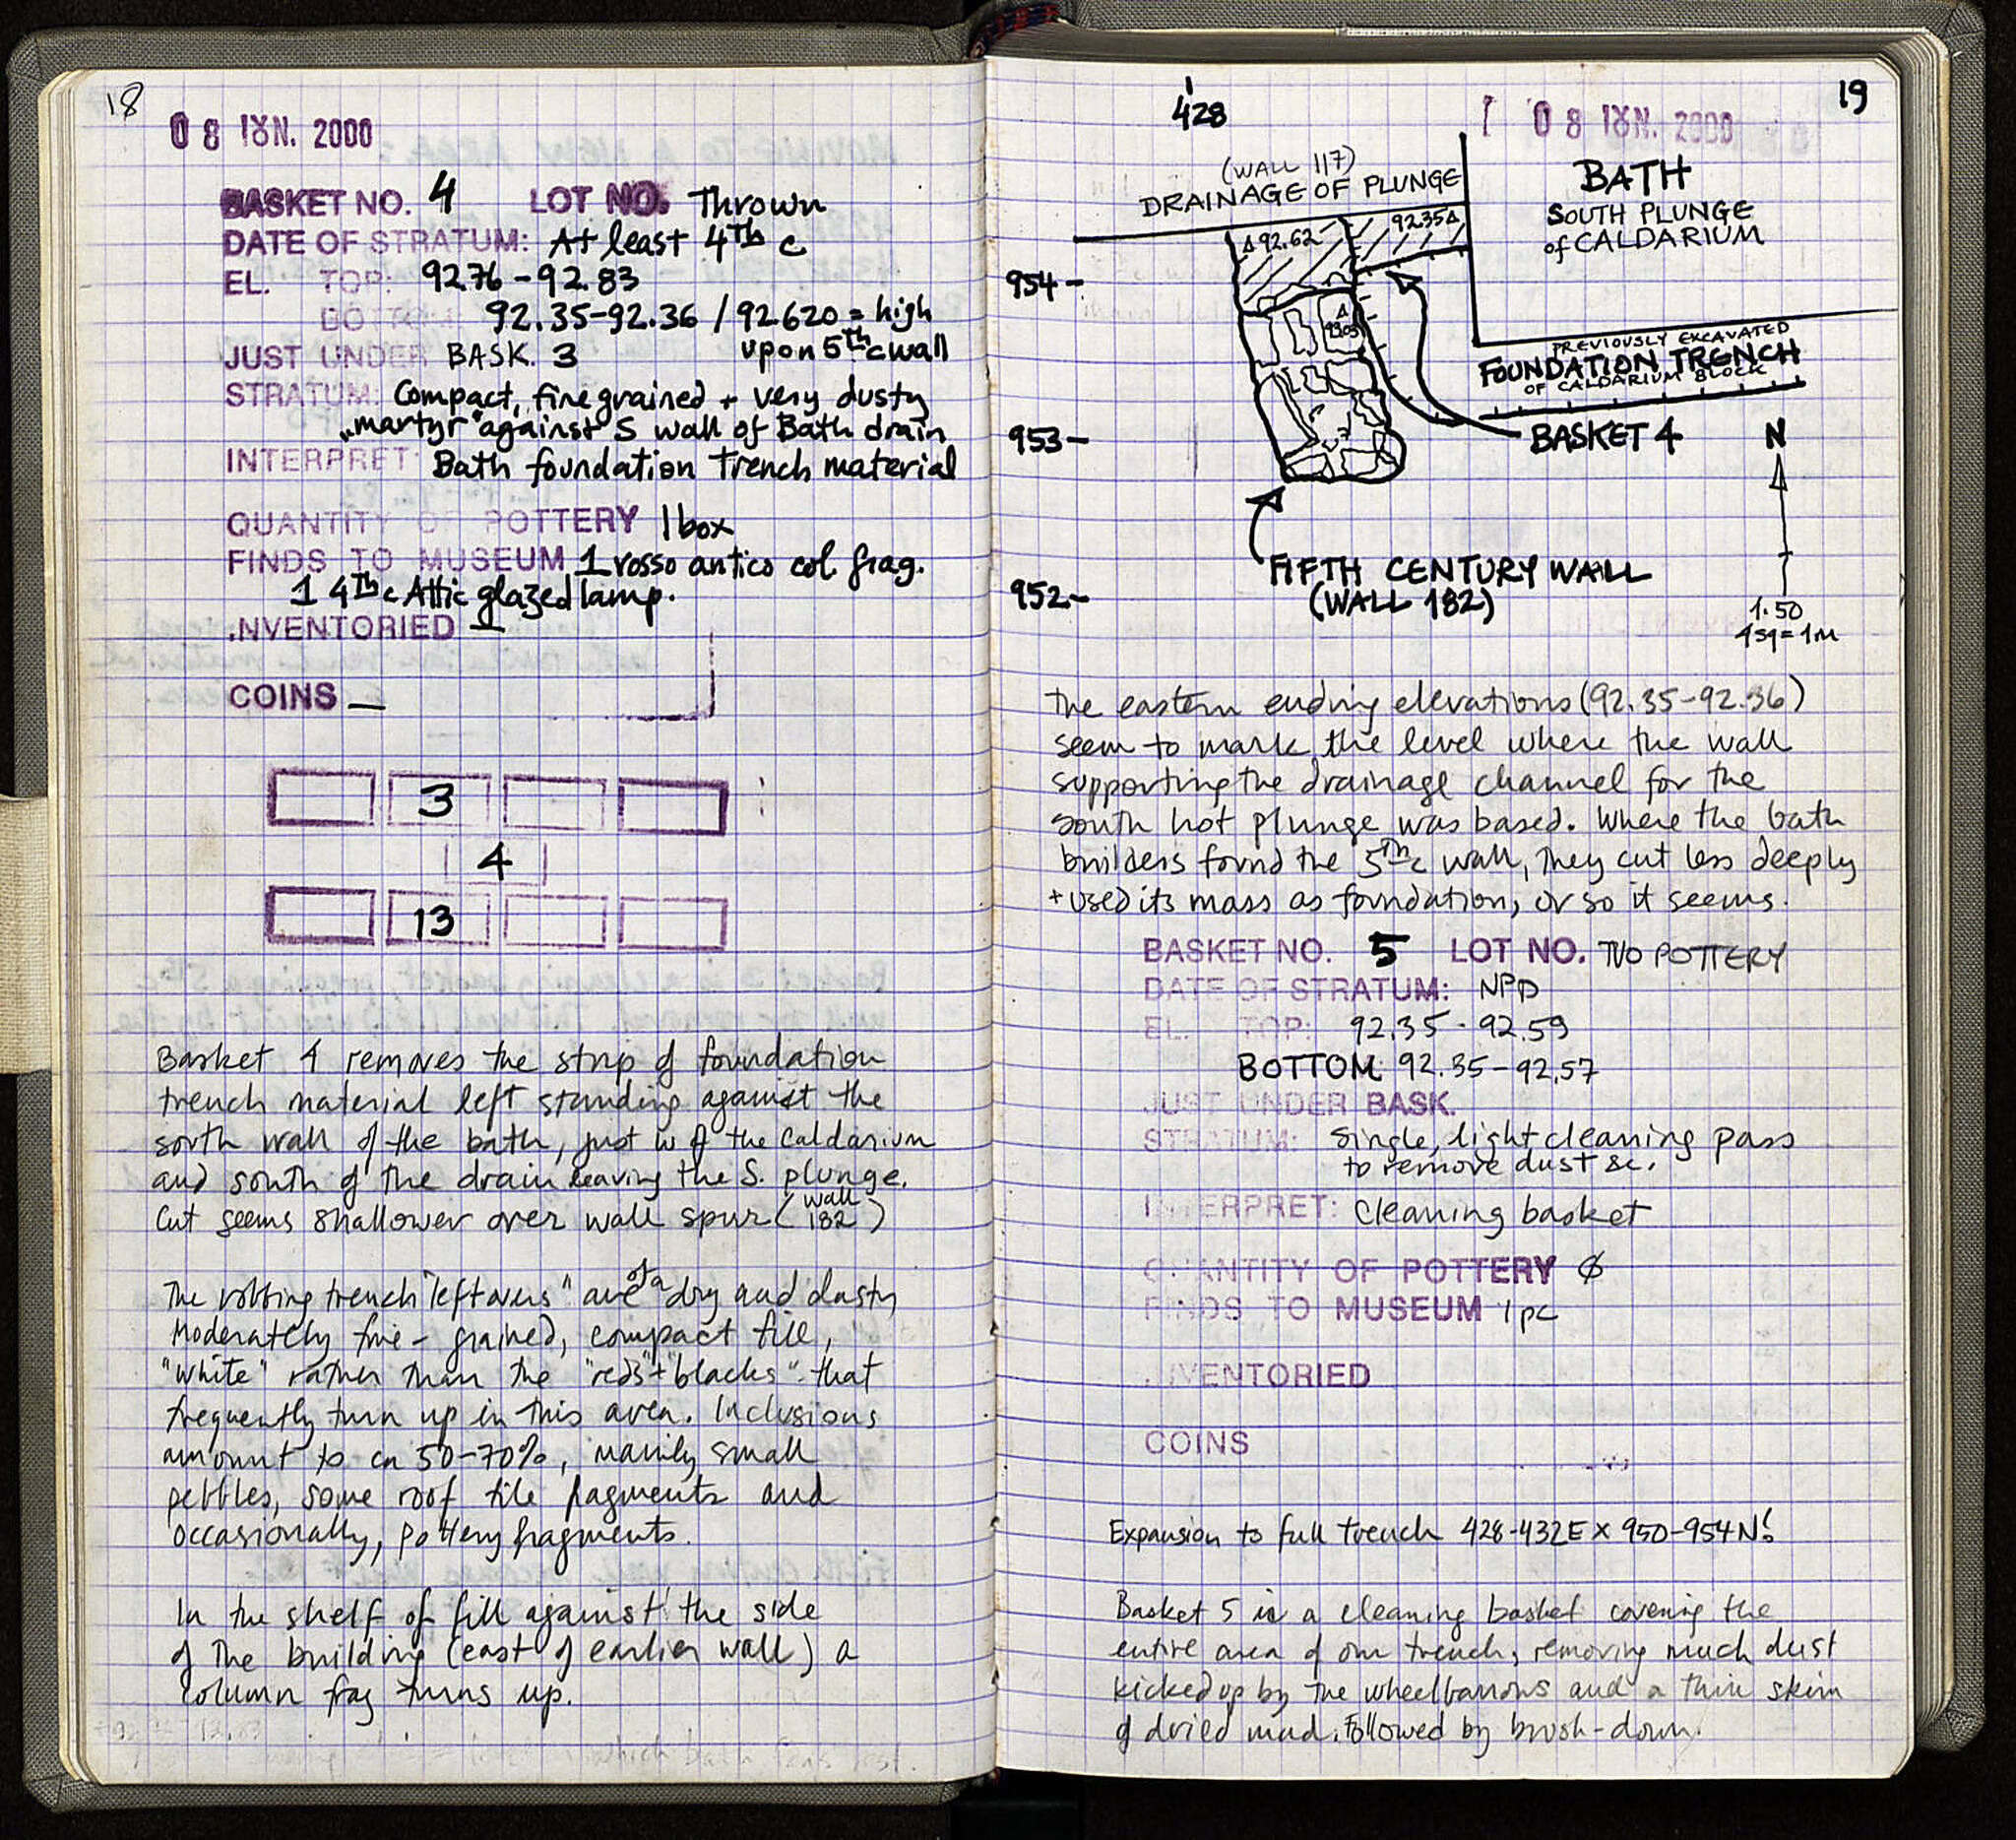 18
08 ΙΟΥΝ. 2000
BASKET NO. 4 LOT NO. Thrown
DATE OF STRATUM: At least 4Th c
EL. TOP: 92.76-92.83
BOTTOM: 92.35-92.36 / 92.620 = high
upon 5Th c wall
JUST UNDER BASK. 3
STRATUM: Compact, fine grained + very dusty
"martyr" against S wall of Bath drain
INTERPRET: Bath foundation Trench material
QUANTITY OF POTTERY 1 box
FINDS TO MUSEUM 1 rosso antico col. frag.
1 4Th c Attic glazed lamp.
.NVENTORIED —
COINS —
3
4
13
Basket 4 removes the strip of foundation
trench material left standing against the
south wall of the bath, just W of the Caldarium
and south of the drain leaving the S. plunge.
Cut seems shallower over wall spur (wall 182)
The robbing trench "leftovers" are of a dry and dusty
moderately fine-grained, compact fill,
"white" rather than the "reds"+"blacks" that
frequently turn up in this area. Inclusions
amount to ca 50-70%, mainly small
pebbles, some roof tile fragments and
occasionally, pottery fragments.
In the shelf of fill against the side
of the building (east of earlier wall) a
column frag turns up.
19
08 ΙΟΥΝ. 2000
428
(WALL 117)
DRAINAGE OF PLUNGE
BATH
SOUTH PLUNGE
of CALDARIUM
Δ92.62
92.35Δ
954-
PREVIOUSLY EXCAVATED
FOUNDATION TRENCH
OF CALDARIUM BLOCK
953-
BASKET 4
N
FIFTH CENTURY WALL
(WALL 182)
952-
1:50
4sq = 1m
The eastern ending elevations (92.35-92.36)
seem to mark the level where the wall
supporting the drainage channel for the
south hot plunge was based. Where the bath
builders found the 5Th c wall, they cut less deeply
+ used its mass as foundation, or so it seems.
BASKET NO. 5 LOT NO. NO POTTERY
DATE OF STRATUM: NPD
EL. TOP: 92.35-92.59
BOTTOM: 92.35-92.57
JUST UNDER BASK.
STRATUM: Single, light cleaning pass
to remove dust &c.
INTERPRET: Cleaning basket
QUANTITY OF POTTERY ∅
FINDS TO MUSEUM 1 pc
.NVENTORIED
COINS
Expansion to full trench 428-432E x 950-954N!
Basket 5 is a cleaning basket covering the
entire area of our trench, removing much dust
kicked up by the wheelbarrows and a thin skim
of dried mud. Followed by brush-down.